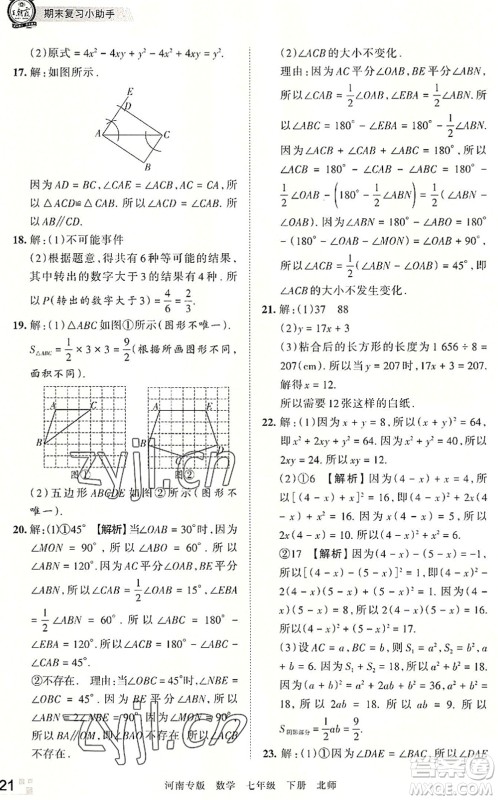 期末复习小助手
(2)原式 = 4x² - 4xy + y² - 4x² - 4xy = y² - 8xy.
17. 解:如图所示.
E
D
A
C
B
因为 AD = BC, ∠CAE = ∠ACB, AC = CA, 所
以△ADC≌△CBA, 所以∠ACD = ∠CAB, 所
以 AB∥CD.
18. 解:(1)不可能事件
(2)根据题意,得共有 6 种等可能的结果,其
中转出的数字大于 3 的结果有 4 种.
所以 P(转出的数字大于 3) = 4/6 = 2/3.
19. 解:(1)△ABC 如图①所示(图形不唯一).
S△ABC = 1/2 × 3 × 3 = 9/2(根据所画三角形不同,
面积不同).
A
C
B
图①
A
B
图②
(2)五边形 ABCDE 如图②所示(图形不唯一).
20. 解:(1)①45° 【解析】当∠OAB = 30°时,因为
∠MON = 90°, 所以∠ABO = 60°, 所以∠ABN
= 120°. 因为 AC 平分∠OAB, BE 平分∠ABN,
所以∠BAC = 1/2∠OAB = 15°, ∠EBA =
1/2∠ABN = 60°, 所以∠ABC = 180° -
∠EBA = 120°, 所以∠ACB = 180° - ∠ABC -
∠BAC = 45°.
②不存在. 理由:当∠OBC = 45°时,∠NBE =
∠OBC = 45°. 因为 BE 平分∠ABN, 所以
∠NBA = 90°. 因为∠MON = 90° = ∠NBA, 所
以 BA∥OM, 即 BA 与 OM 没有交点, 所以
不存在.
(2)∠ACB 的大小不发生变化.
理由:因为 AC 平分∠OAB, BE 平分∠ABN,
所以∠CAB = 1/2∠OAB, ∠EBA = 1/2∠ABN,
所以∠ABC = 180° - ∠EBA = 180° - 1/2∠ABN.
因为∠CAB + ∠ACB + ∠ABC = 180°, 所以
∠ACB = 180° - ∠CAB - ∠ABC = 180° -
1/2∠OAB - (180° - 1/2∠ABN) = 1/2∠ABN -
1/2∠OAB. 因为∠ABN = 180° - ∠ABO =
180° - (180° - ∠MON - ∠OAB) = 90° +
∠OAB, 所以∠ACB = 1/2 × 90° = 45°, 即∠ACB
的大小不发生变化.
21. 解:(1)37 88
(2)y = 17x + 3
(3)粘合后的长方形的长度为 1 656 ÷ 8 =
207(cm), 所以 17x + 3 = 207.
解得 x = 12.
所以需要用 12 张这样的白纸.
22. 解:(1)因为 x + y = 8, 所以(x + y)² = 64, 即
x² + 2xy + y² = 64. 因为 x² + y² = 40, 所以
2xy = 24. 所以 xy = 12.
(2)①6 【解析】因为(4 - x) + x = 4, 所以
[(4 - x) + x]² = (4 - x)² + 2(4 - x)x +
x² = 16. 因为(4 - x)x = 5, 所以(4 - x)² +
x² = 16 - 2 × 5 = 6.
②17 【解析】因为(4 - x) - (5 - x) = -1, 所
以[(4 - x) - (5 - x)]² = (4 - x)² -
2(4 - x)(5 - x) + (5 - x)² = 1. 因为(4 -
x)(5 - x) = 8, 所以(4 - x)² + (5 - x)² =
1 + 2 × 8 = 17.
(3)设 AC = a, BC = b, 则 S₁ = a², S₂ = b². 因
为 S₁ + S₂ = 18, 所以 a² + b² = 18. 因为 AB =
6, 所以 a + b = 6. 因为(a + b)² = a² + 2ab +
b², 所以 2ab = 18, 所以 ab = 9, 所以
S阴影部分 = 1/2ab = 9/2.
23. 解:(1)因为∠DAE = ∠BAC, 所以∠DAE -
zyjl.cn
zyjl.cn
21
河南专版 数学 七年级 下册 北师